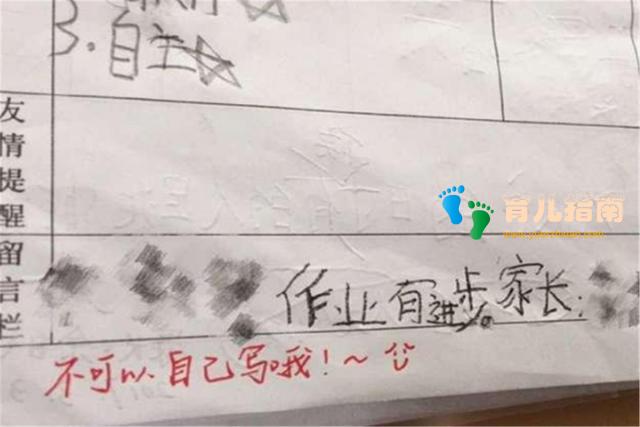 3.自主
友情提醒
留言栏
作业有进步。家长:
不可以自己写哦!~
育儿指南